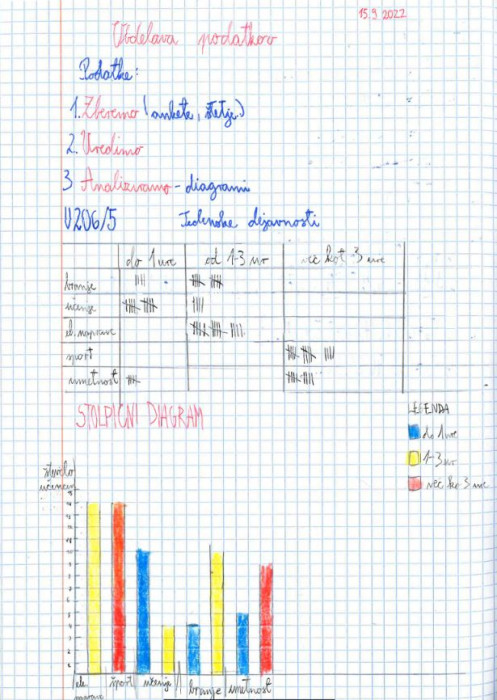 15.9.2022
Obdelava podatkov
Podatke:
1. Zberemo (ankete, štetje)
2. Uredimo
3 Analiziramo - diagrami
U206/5 Tedenske dejavnosti
do 1 ure od 1-3 ur več kot 3 ure
branje
učenje
el. naprave
šport
umetnost
STOLPIČNI DIAGRAM
LEGENDA
do 1 ure
1-3 ur
več ko 3 ure
število
učencev
ele naprave šport učenje branje umetnost